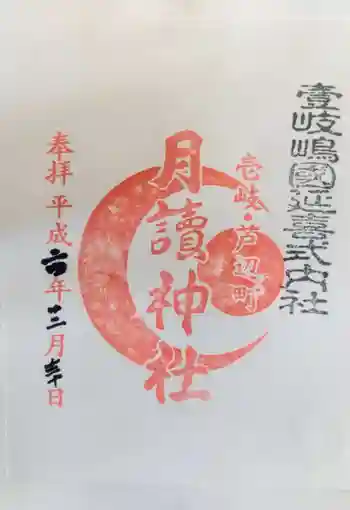 壹岐嶋國延喜式内社
壱岐・芦辺町
月讀神社
奉拝 平成 年 三月 日